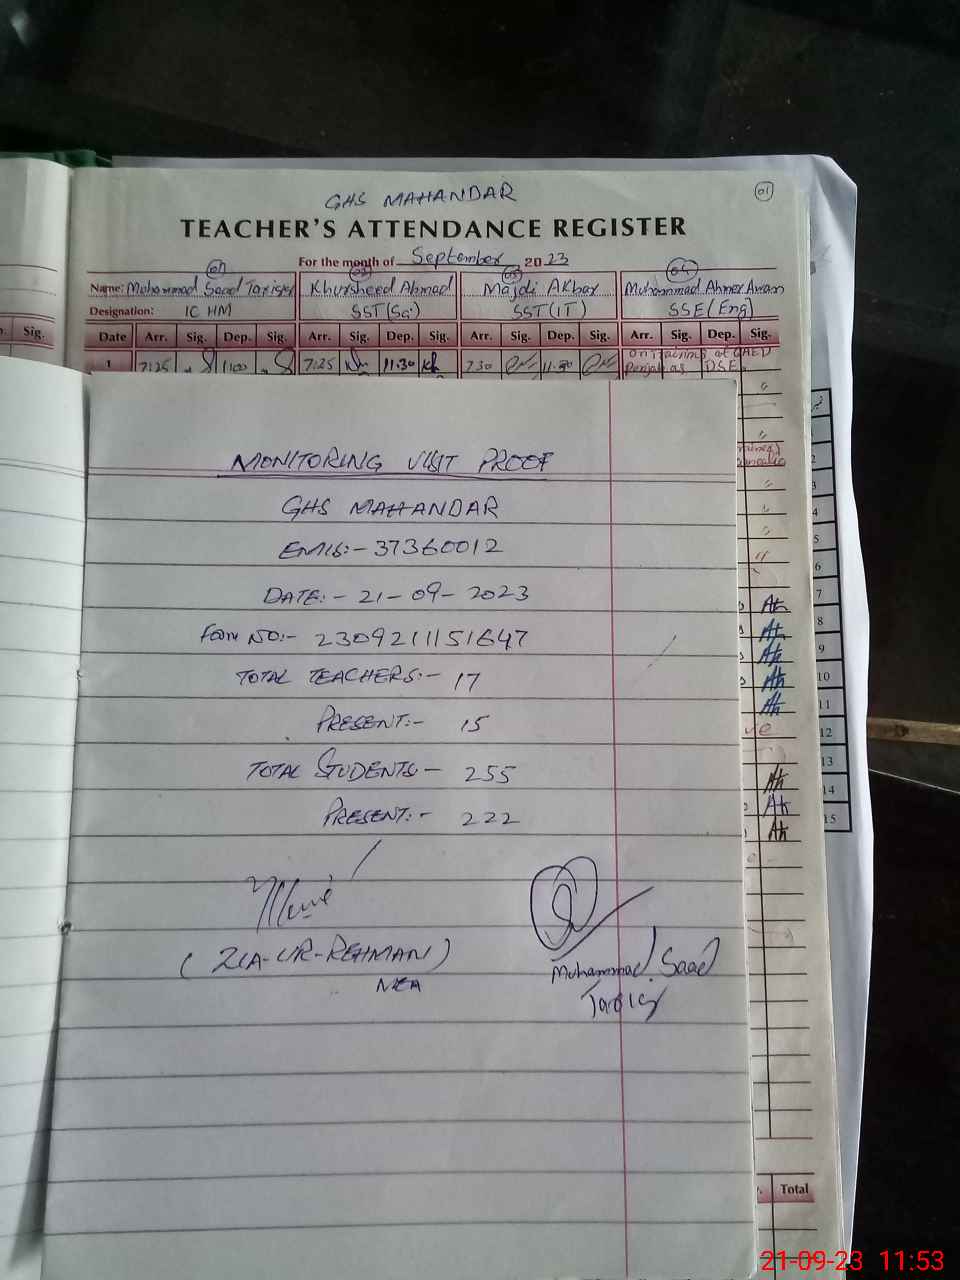 GHS MAHANDAR
01
TEACHER'S ATTENDANCE REGISTER
For the month of September 2023
01 02 03 04
Name: Muhammad Saad Tariq Khursheed Ahmad Majdi Akbar Muhammad Ahmer Awan
Designation: IC HM SST (Sc) SST (IT) SSE (Eng)
Sig. Date Arr. Sig. Dep. Sig. Arr. Sig. Dep. Sig. Arr. Sig. Dep. Sig. Arr. Sig. Dep. Sig.
1 7:25 11:00 7:25 11.30 7:30 11:30 on training at QAED
Punjab as DSE.
MONITORING VISIT PROOF
GHS MAHANDAR
EMIS:- 37360012
DATE:- 21-09-2023
FORM NO:- 2309211151647
TOTAL TEACHERS:- 17
PRESENT:- 15
TOTAL STUDENTS:- 255
PRESENT:- 222
(ZIA-UR-REHMAN)
MEA
Muhammad Saad
Tariq
2
3
4
5
6
7
8
9
10
11
12
13
14
15
Total
21-09-23 11:53